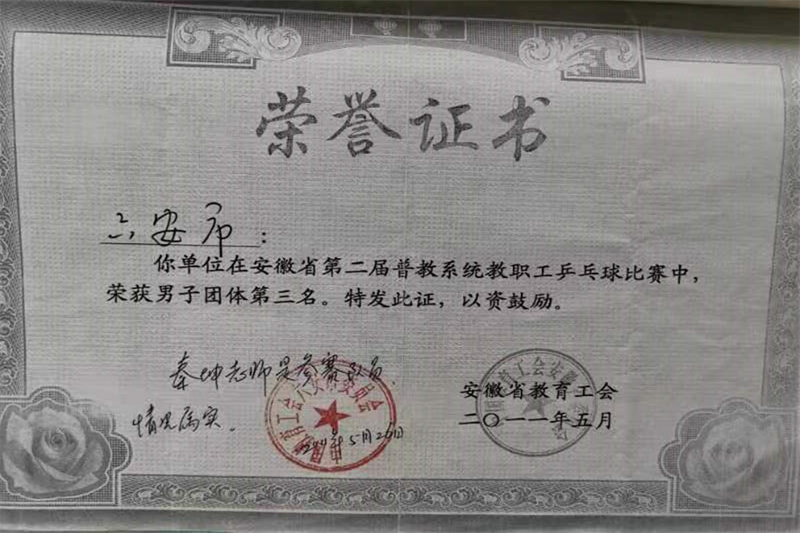 荣誉证书
六安市：
你单位在安徽省第二届普教系统教职工乒乓球比赛中，
荣获男子团体第三名。特发此证，以资鼓励。
秦坤老师是参赛队员.
情况属实.
2011年5月26日
安徽省教育工会
二〇一一年五月